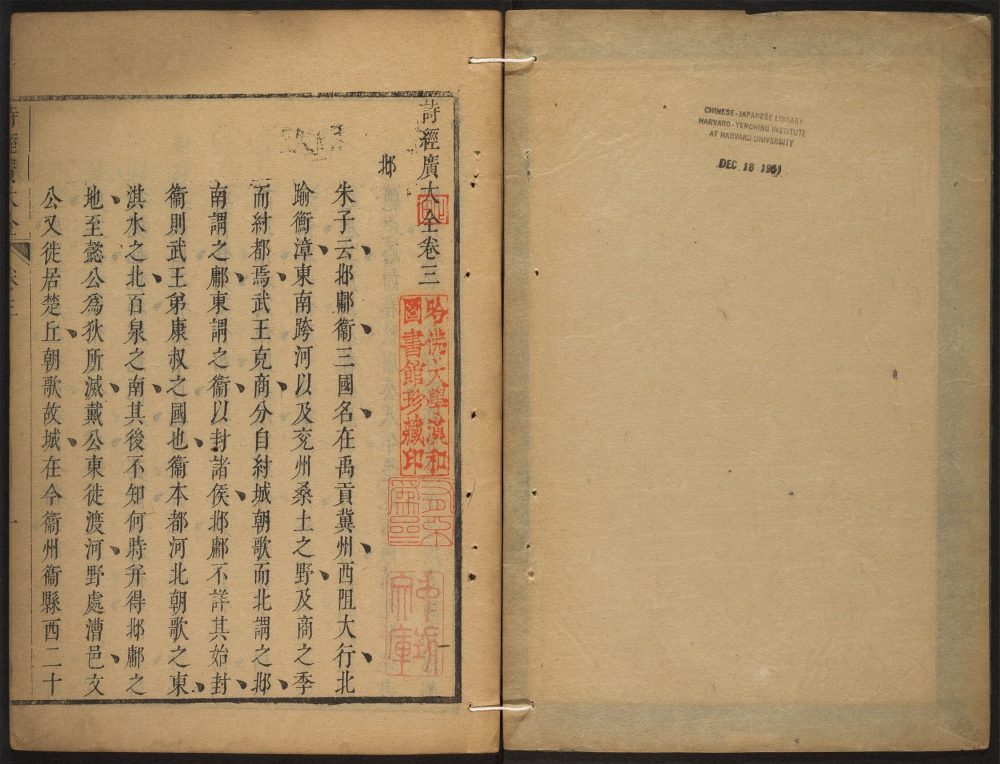 詩經廣大全卷三
邶
朱子云邶鄘衞三國名在禹貢冀州西阻大行北
踰衡漳東南跨河以及兗州桑土之野及商之季
而紂都焉武王克商分自紂城朝歌而北謂之邶
南謂之鄘東謂之衞以封諸侯邶鄘不詳其始封
衞則武王弟康叔之國也衞本都河北朝歌之東
淇水之北百泉之南其後不知何時幷得邶鄘之
地至懿公爲狄所滅戴公東徙渡河野處漕邑文
公又徙居楚丘朝歌故城在今衞州衞縣西二十
哈佛大學漢和
圖書館珍藏印
文庫
CHINESE-JAPANESE LIBRARY
HARVARD-YENCHING INSTITUTE
AT HARVARD UNIVERSITY
DEC 18 1951